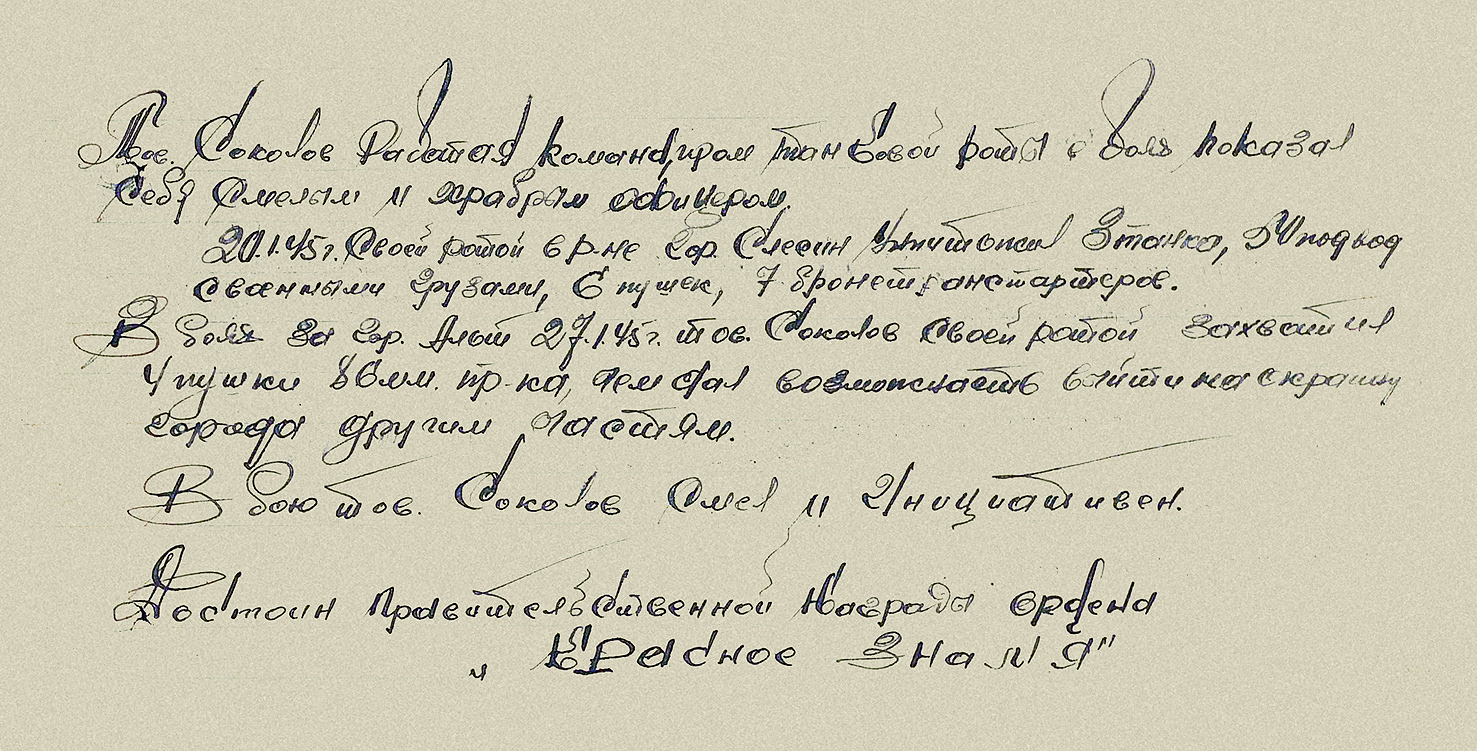 Тов. Соколов работая командиром танковой роты в боях показал
себя смелым и храбрым офицером.
20.1.45г. своей ротой в р-не гор. Слесин уничтожил 3 танка, 50 подвод
с военными грузами, 6 пушек, 7 бронетранспартеров.
В боях за гор. Альт 27.1.45г. тов. Соколов своей ротой захватил
4 пушки 86 мм. пр-ка, чем дал возможность выйти на окраину
города другим частям.
В бою тов. Соколов смел и инициативен.
Достоин правительственной награды ордена
„Красное Знамя"